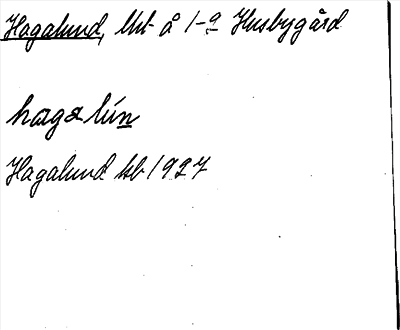 Hagalund, lht å 1-a Husbygård
hagalún
Hagalund hb 1927